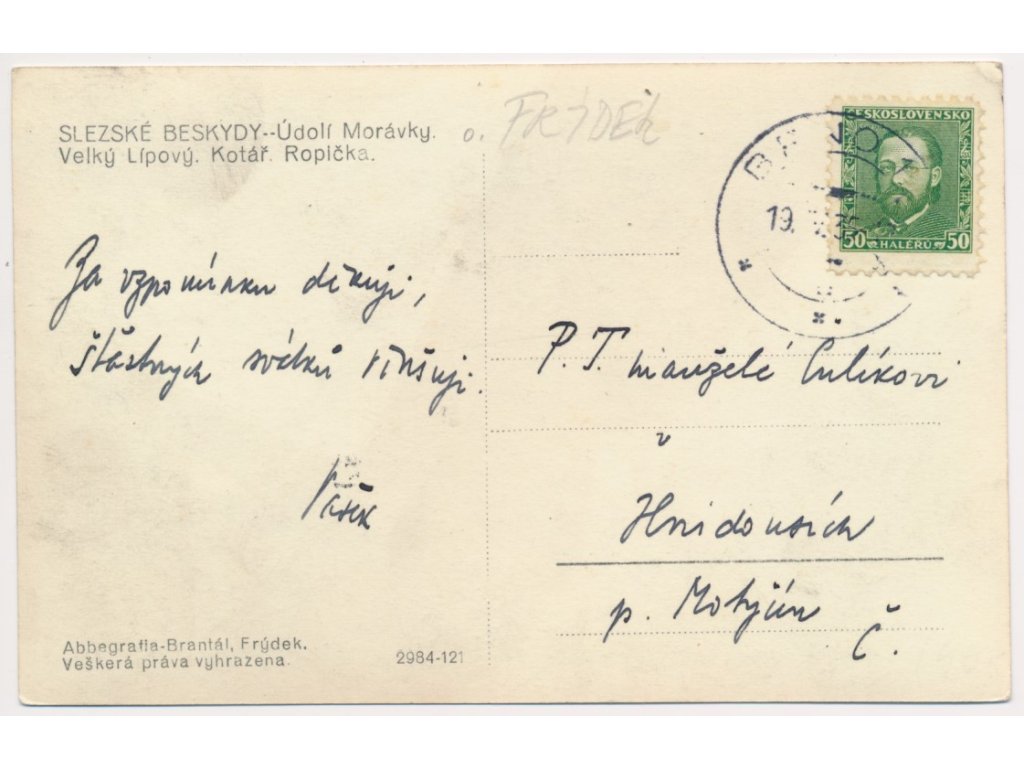 SLEZSKÉ BESKYDY--Údolí Morávky.
Velký Lípový. Kotář. Ropička.
o. FRÝDEK
ČESKOSLOVENSKO
50 HALÉŘŮ 50
19.
Za vzpomínku děkuji,
šťastných svátků vinšuji.
Vašek
P. T. manželé Culíkovi
v
Hnidousích
p. Motyčín
Č.
Abbegrafia-Brantál, Frýdek.
Veškerá práva vyhrazena.
2984-121